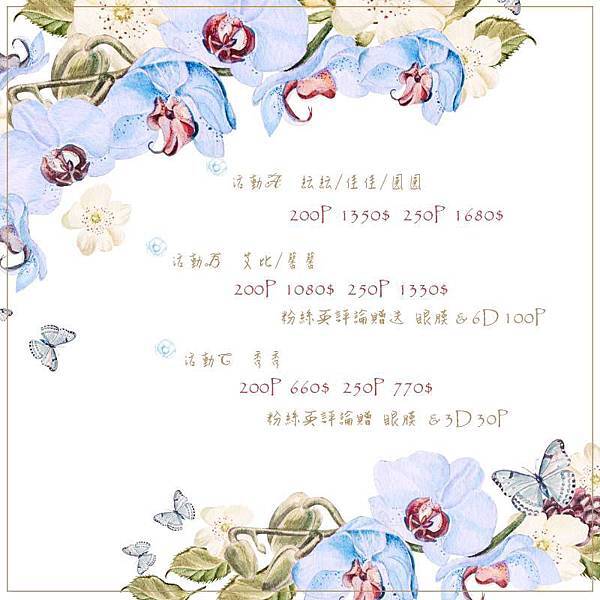 活動A 紜紜/佳佳/圓圓
200P 1350$ 250P 1680$
活動B 艾比/馨馨
200P 1080$ 250P 1330$
粉絲頁評論贈送 眼膜 & 6D 100P
活動C 秀秀
200P 660$ 250P 770$
粉絲頁評論贈 眼膜 & 3D 30P